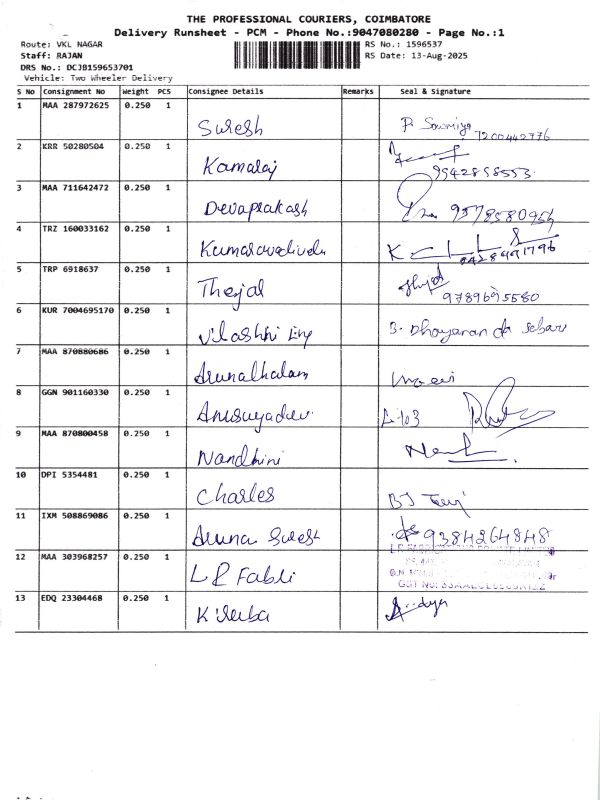 THE PROFESSIONAL COURIERS, COIMBATORE
Delivery Runsheet - PCM - Phone No.:9047080280 - Page No.:1
Route: VKL NAGAR RS No.: 1596537
Staff: RAJAN RS Date: 13-Aug-2025
DRS No.: DCJB159653701
Vehicle: Two Wheeler Delivery
S No Consignment No Weight PCS Consignee Details Remarks Seal & Signature
1 MAA 287972625 0.250 1 Suresh P. Sowmiya 7200442776
2 KRR 50280504 0.250 1 Kamaraj 9942858553
3 MAA 711642472 0.250 1 Devaprakash 9578580954
4 TRZ 160033162 0.250 1 Kumaravadivelu
5 TRP 6918637 0.250 1 Thejal 9789695580
6 KUR 7004695170 0.250 1 Vilashni Eng
7 MAA 870880686 0.250 1 Arunalhalam
8 GGN 901160330 0.250 1 Anusuyadevi
9 MAA 870800458 0.250 1 Nandhini
10 DPI 5354481 0.250 1 Charles
11 IXM 508869086 0.250 1 Aruna Suresh 9384264848
12 MAA 303968257 0.250 1 L R Fabli
13 EDQ 23304468 0.250 1